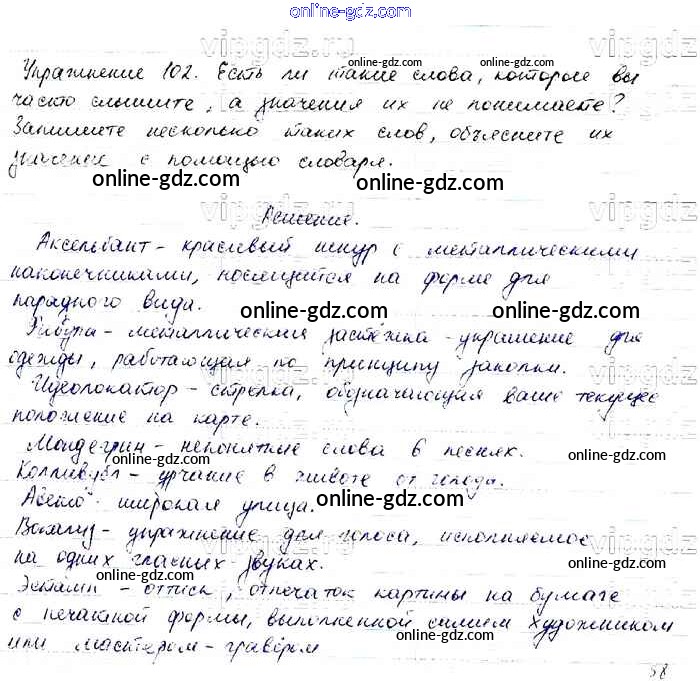 online-gdz.com
Упражнение 102. Есть ли такие слова, которые вы
часто слышите, а значения их не понимаете?
Запишите несколько таких слов, объясните их
значение с помощью словаря.
Решение.
Аксельбант - красивый шнур с металлическими
наконечниками, носящийся на форме для
парадного вида.
Фибула - металлическая застёжка - украшение для
одежды, работающая по принципу заколки.
Идеолокатор - стрелка, обозначающая ваше текущее
положение на карте.
Мондегрин - непонятные слова в песнях.
Колливубл - урчание в животе от голода.
Авеню - широкая улица.
Вокализ - упражнение для голоса, исполняемое
на одних гласных звуках.
Эстамп - оттиск, отпечаток картины на бумаге
с печатной формы, выполненной самим художником
или мастером - гравёром
58